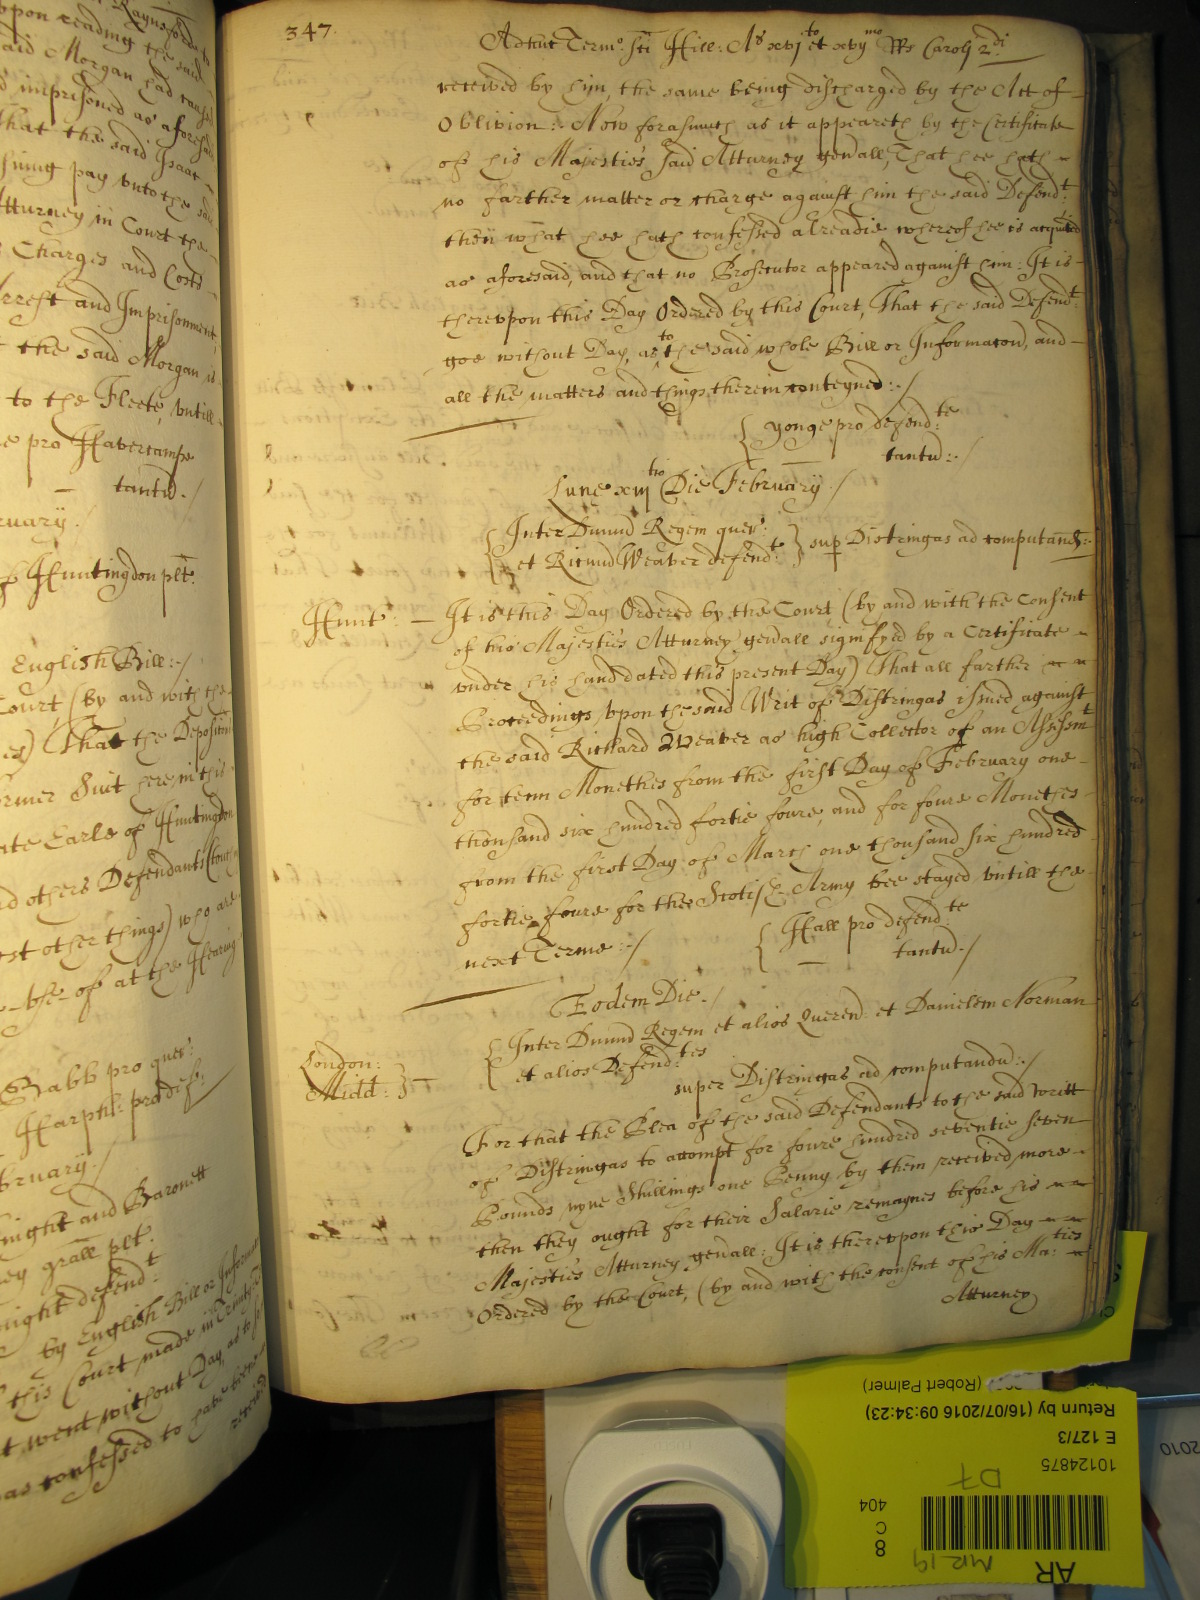 Raynsford to
vpon reading the said
said Morgan had caused
d imprisoned as aforesaid
that the said Isaac
pay vnto the said
Atturney in Court the
Charges and Costs
Arrest and Imprisonment,
the said Morgan is
to the Fleete, vntill
pro Havercampe
tantu.
ruary:
Huntingdon plt.
English Bill:
Court (by and with the
That the Deposicons
former Suit here, in this
late Earle of Huntingdon
d others Defendants
st other things) who are
of at the Hearing
Babb pro quer:
Harph: pro def:
bruary:
night and Baronett
ney grall plt.
night defendt:
by English Bill or Informa
this Court made in
t went without Day, as to
as confessed to have been
received
347.
Adhuc Termo: Sti Hill: Ao xvjto et xvijmo Rs Carolj 2di
received by him, the same being discharged by the Act of
Oblivion: Now forasmuch as it appeareth by the Certificate
of his Majesties said Atturney genall, That hee hath
no farther matter or charge against him the said Defendt:
then what hee hath confessed alreadie whereof hee is acquited
as aforesaid, and that no Prosecutor appeared against him: It is
therevpon this Day Ordered by this Court, That the said Defendt:
goe without Day, as to the said whole Bill or Informacon, and
all the matters and things therein conteyned:
yonge pro defendte:
tantu:
Lune xiijtio Die February
Inter Dnum Regem quer:
et Ricum Weaver defendt:
sup Distringas ad computand:
Hunt: It is this Day Ordered by the Court (by and with the Consent
of his Majesties Atturney genall signifyed by a Certificate
vnder his hand dated this present Day) That all farther
Proceedings vpon the said Writ of Distringas issued against
the said Richard Weaver as high Collector of an Assessmt
for tenn Monethes from the first Day of February one
thousand six hundred fortie foure, and for foure Monethes
from the first Day of March one thousand six hundred
fortie foure for the Scotish Army bee stayed vntill the
next Terme:
Hall pro defendte:
tantu.
Eodem Die.
London:
Midd:
Inter Dnum Regem et alios Querend: et Danielem Norman
et alios Defendtes
super Distringas ad computandu:
For that the Plea of the said Defendants to the said Writt
of Distringas to accompt for foure hundred seventie seven
Pounds nyne Shillings one Penny by them received more
then they ought for their Salarie remaynes before his
Majesties Atturney genall: It is therevpon this Day
Ordered by the Court, (by and with the consent of his Ma:ties
Atturney
(Robert Palmer)
Return by (16/07/2016 09:34:23)
E 127/3
10124875
D7
404
C
8
MR 19
AR
2010